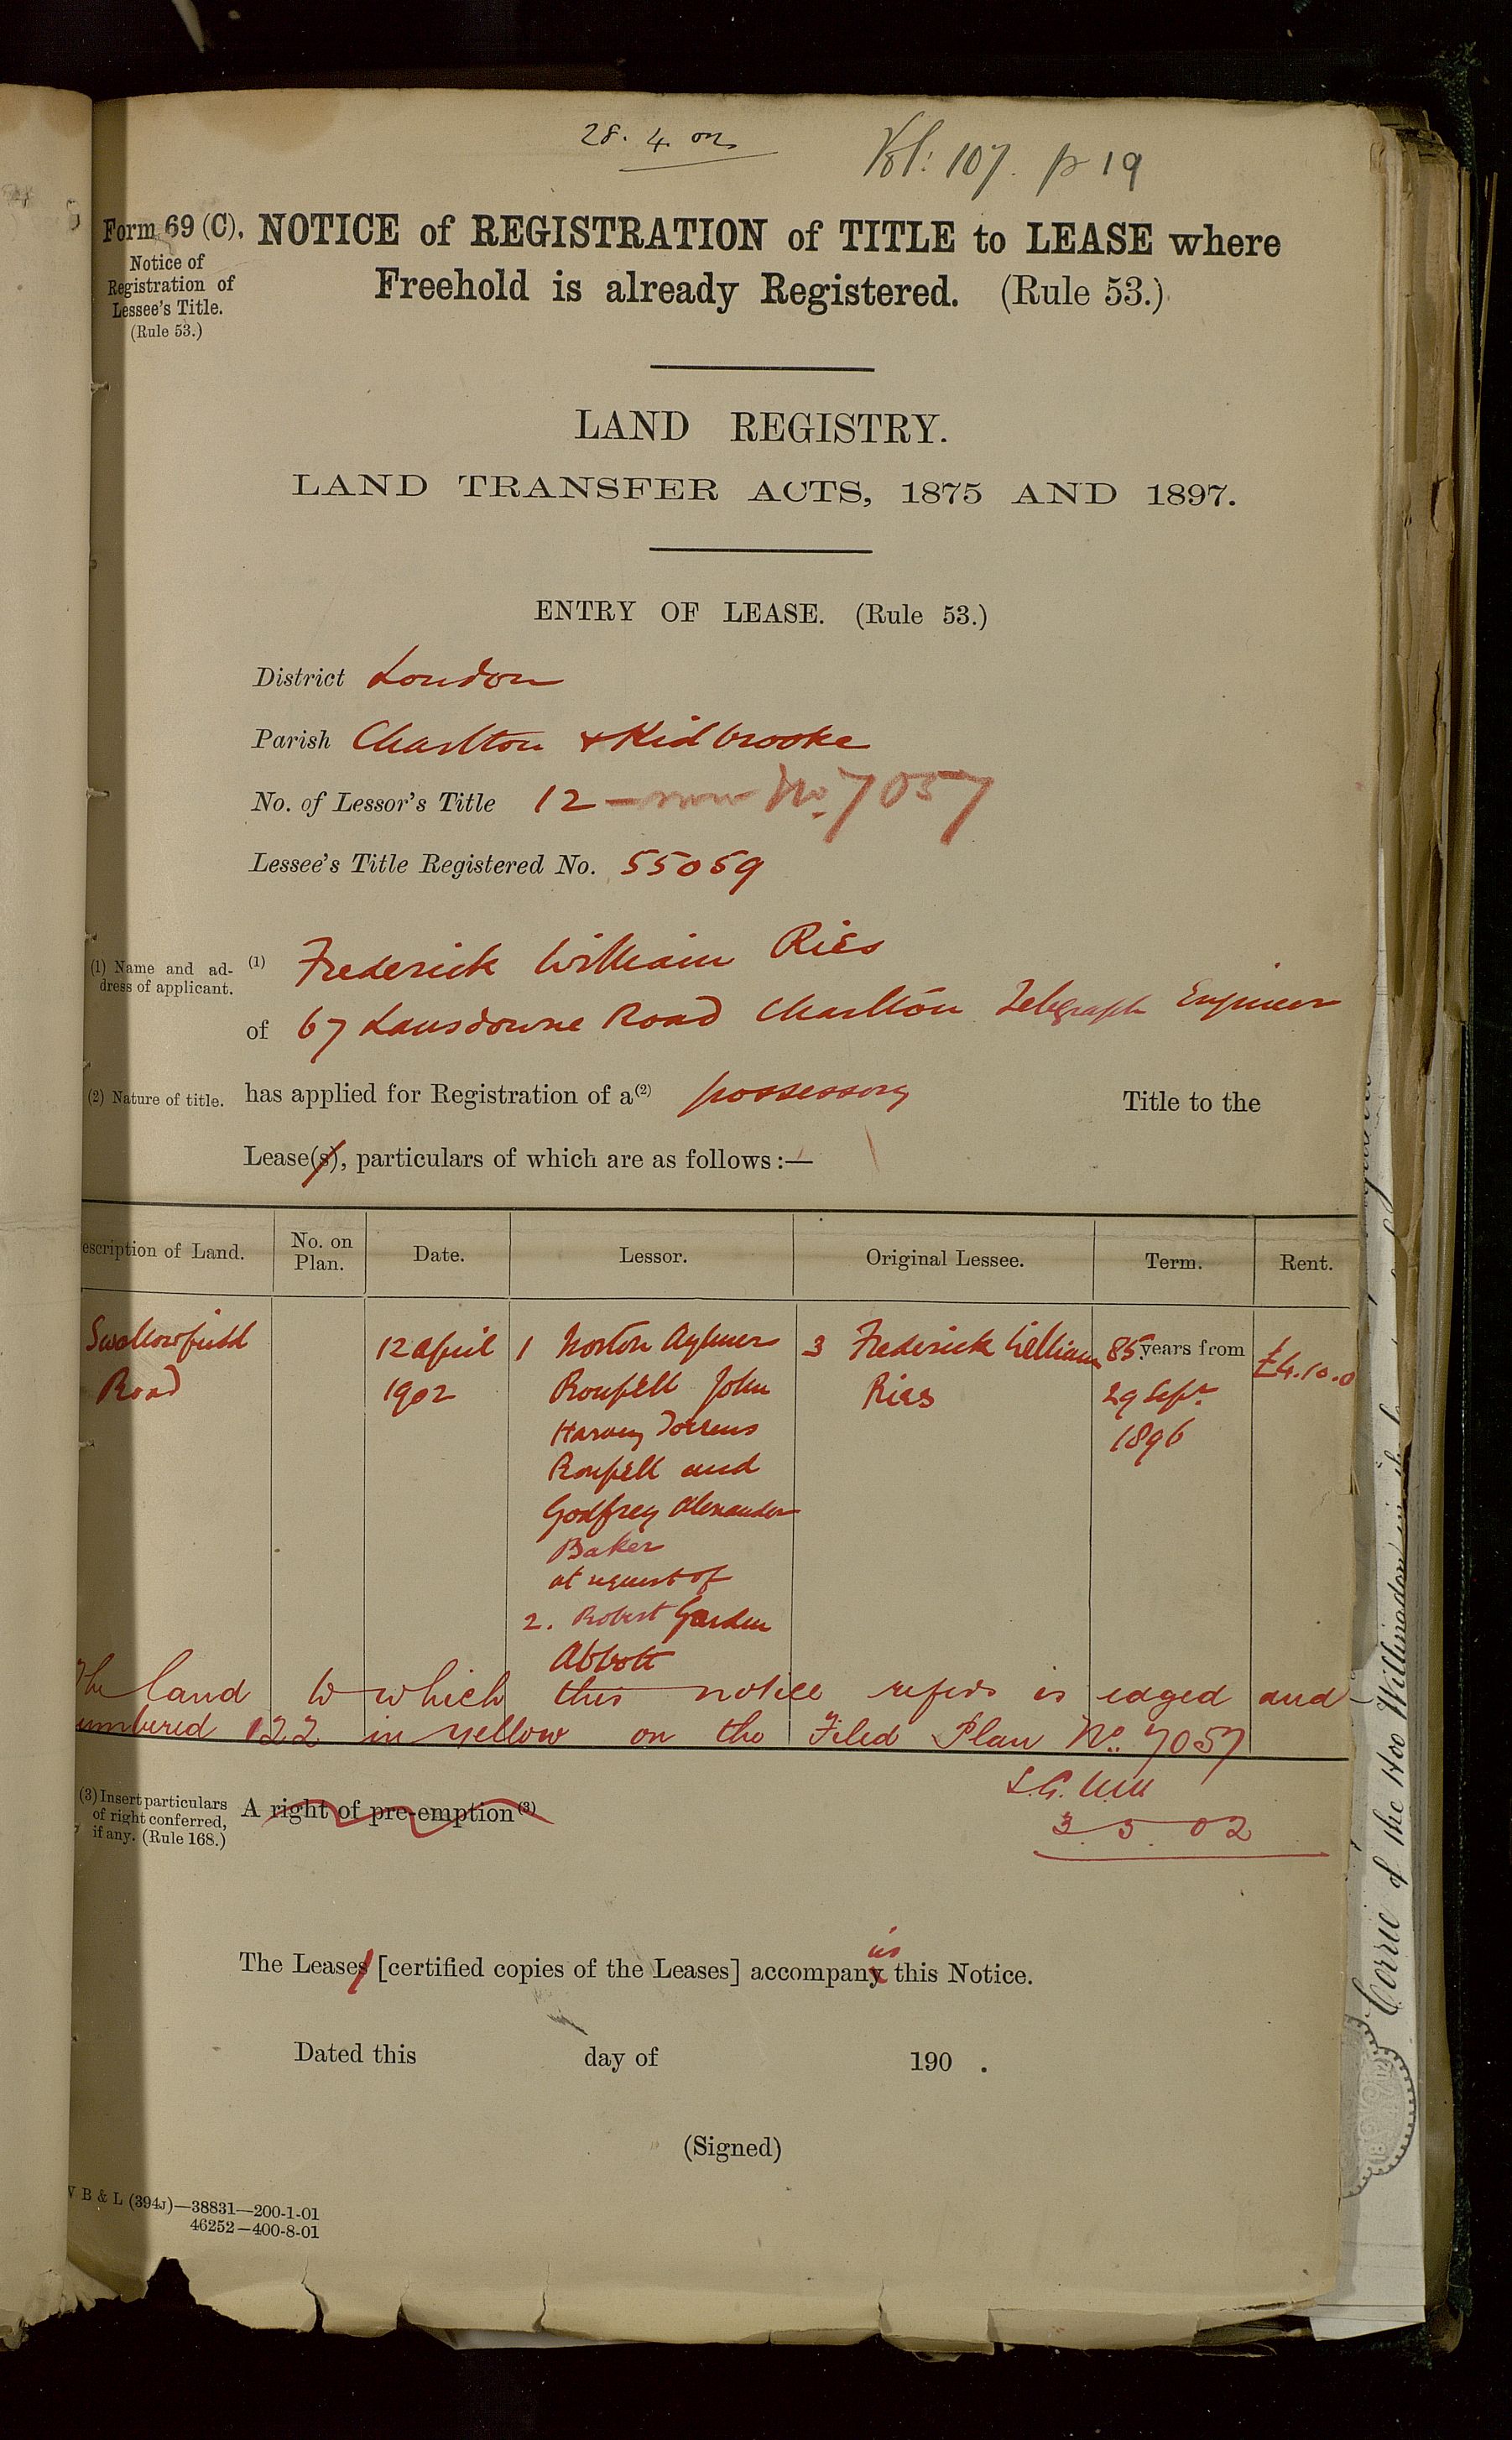 28. 4. 02
Vol: 107. p 19
Form 69 (C).
Notice of
Registration of
Lessee's Title.
(Rule 53.)
NOTICE of REGISTRATION of TITLE to LEASE where
Freehold is already Registered. (Rule 53.)
LAND REGISTRY.
LAND TRANSFER ACTS, 1875 AND 1897.
ENTRY OF LEASE. (Rule 53.)
District London
Parish Charlton & Kidbrooke
No. of Lessor's Title 12 — now No. 7057
Lessee's Title Registered No. 55059
(1) Name and ad-
dress of applicant.
(1) Frederick William Ries
of 67 Lansdowne Road Charlton Telegraph Engineer
(2) Nature of title.
has applied for Registration of a(2) possessory Title to the
Lease(s), particulars of which are as follows :—
escription of Land.
No. on
Plan.
Date.
Lessor.
Original Lessee.
Term.
Rent.
Swallowfield
Road
12 April
1902
1 Norton Aylmer
Roupell John
Harvey Torrens
Roupell and
Godfrey Alexander
Baker
at request of
2. Robert Garden
Abbott
3 Frederick William
Ries
85 years from
29 Sept.
1896
£4.10.0
The land to which this notice refers is edged and
umbered 122 in yellow on the Filed Plan No. 7057
3. 5. 02
(3) Insert particulars
of right conferred,
if any. (Rule 168.)
A right of pre-emption(3)
is
The Leases [certified copies of the Leases] accompany this Notice.
Dated this day of 190 .
(Signed)
B & L (394J)—38831—200-1-01
46252—400-8-01
Corrie of the Hoo Willingdon